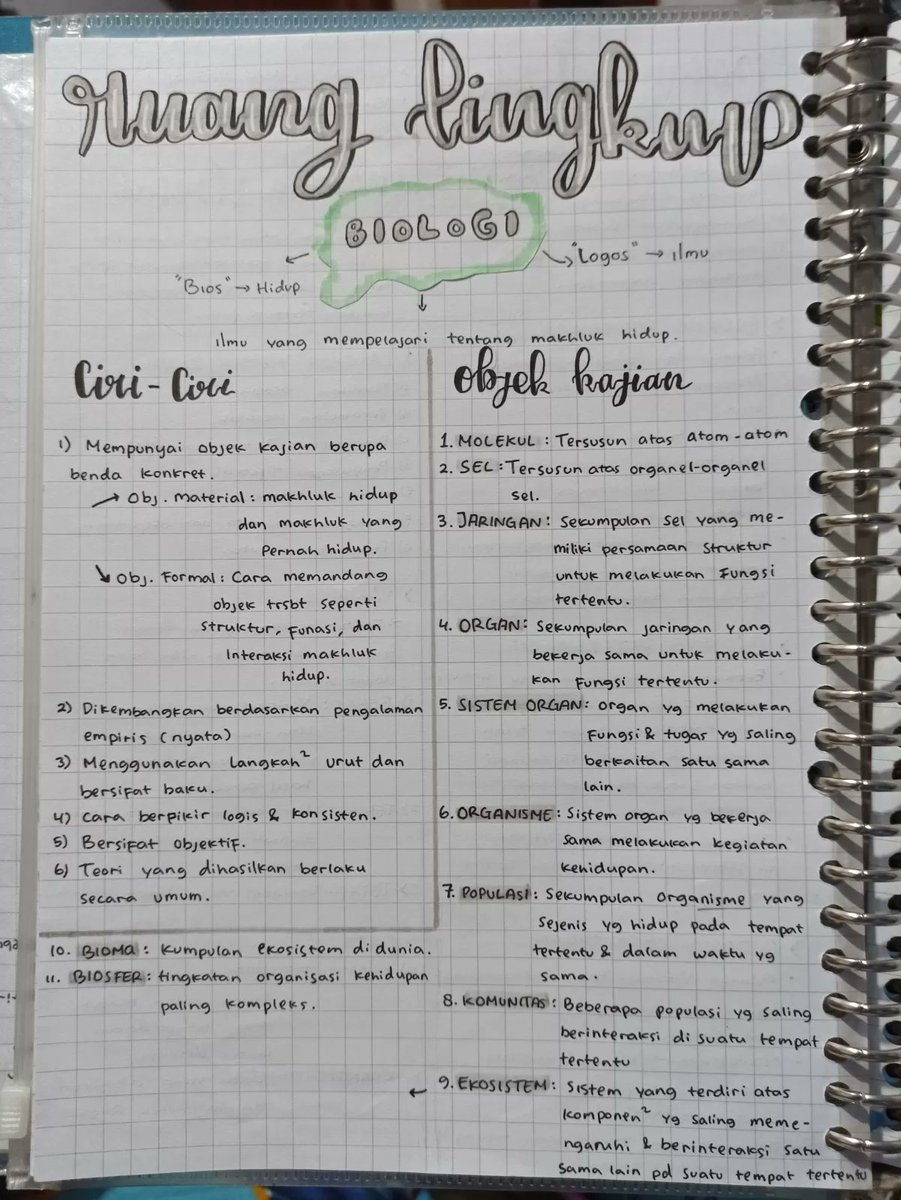 Ruang lingkup
BIOLOGI
"Bios" → Hidup
"Logos" → Ilmu
Ilmu yang mempelajari tentang makhluk hidup.
Ciri-Ciri
1) Mempunyai objek kajian berupa
benda konkret.
→ Obj. Material : makhluk hidup
dan makhluk yang
pernah hidup.
↘ Obj. Formal : Cara memandang
objek trsbt seperti
struktur, fungsi, dan
Interaksi makhluk
hidup.
2) Dikembangkan berdasarkan pengalaman
empiris (nyata)
3) Menggunakan langkah² urut dan
bersifat baku.
4) Cara berpikir logis & konsisten.
5) Bersifat objektif.
6) Teori yang dihasilkan berlaku
secara umum.
Objek kajian
1. MOLEKUL : Tersusun atas atom-atom
2. SEL : Tersusun atas organel-organel
sel.
3. JARINGAN : Sekumpulan sel yang me-
miliki persamaan struktur
untuk melakukan fungsi
tertentu.
4. ORGAN : Sekumpulan jaringan yang
bekerja sama untuk melaku-
kan fungsi tertentu.
5. SISTEM ORGAN : organ yg melakukan
fungsi & tugas yg saling
berkaitan satu sama
lain.
6. ORGANISME : Sistem organ yg bekerja
sama melakukan kegiatan
kehidupan.
7. POPULASI : Sekumpulan organisme yang
sejenis yg hidup pada tempat
tertentu & dalam waktu yg
sama.
8. KOMUNITAS : Beberapa populasi yg saling
berinteraksi di suatu tempat
tertentu
← 9. EKOSISTEM : Sistem yang terdiri atas
komponen² yg saling meme-
ngaruhi & berinteraksi satu
sama lain pd suatu tempat tertentu
10. BIOMA : Kumpulan ekosistem di dunia.
11. BIOSFER : tingkatan organisasi kehidupan
paling kompleks.